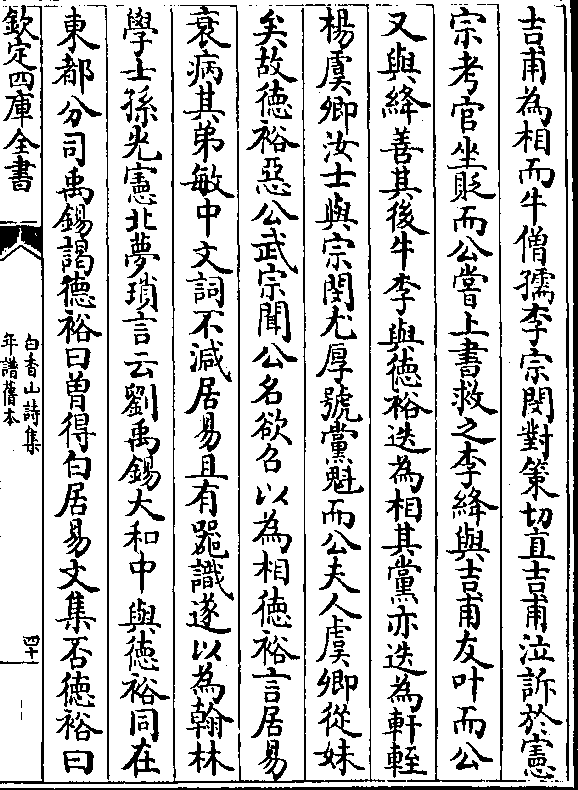 吉甫為相而牛僧孺李宗閔對策切直吉甫泣訴於憲
宗考官坐貶而公嘗上書救之李絳與吉甫友叶而公
又與絳善其後牛李與徳裕迭為相其黨亦迭為軒輊
楊虞卿汝士與宗閔尤厚號黨魁而公夫人虞卿從妹
矣故徳裕惡公武宗聞公名欲召以為相徳裕言居易
衰病其弟敏中文詞不減居易且有器識遂以為翰林
學士孫光憲北夢瑣言云劉禹錫大和中與徳裕同在
東都分司禹錫謁徳裕曰曽得白居易文集否徳裕曰
欽定四庫全書
白香山詩集
年譜舊本
四十